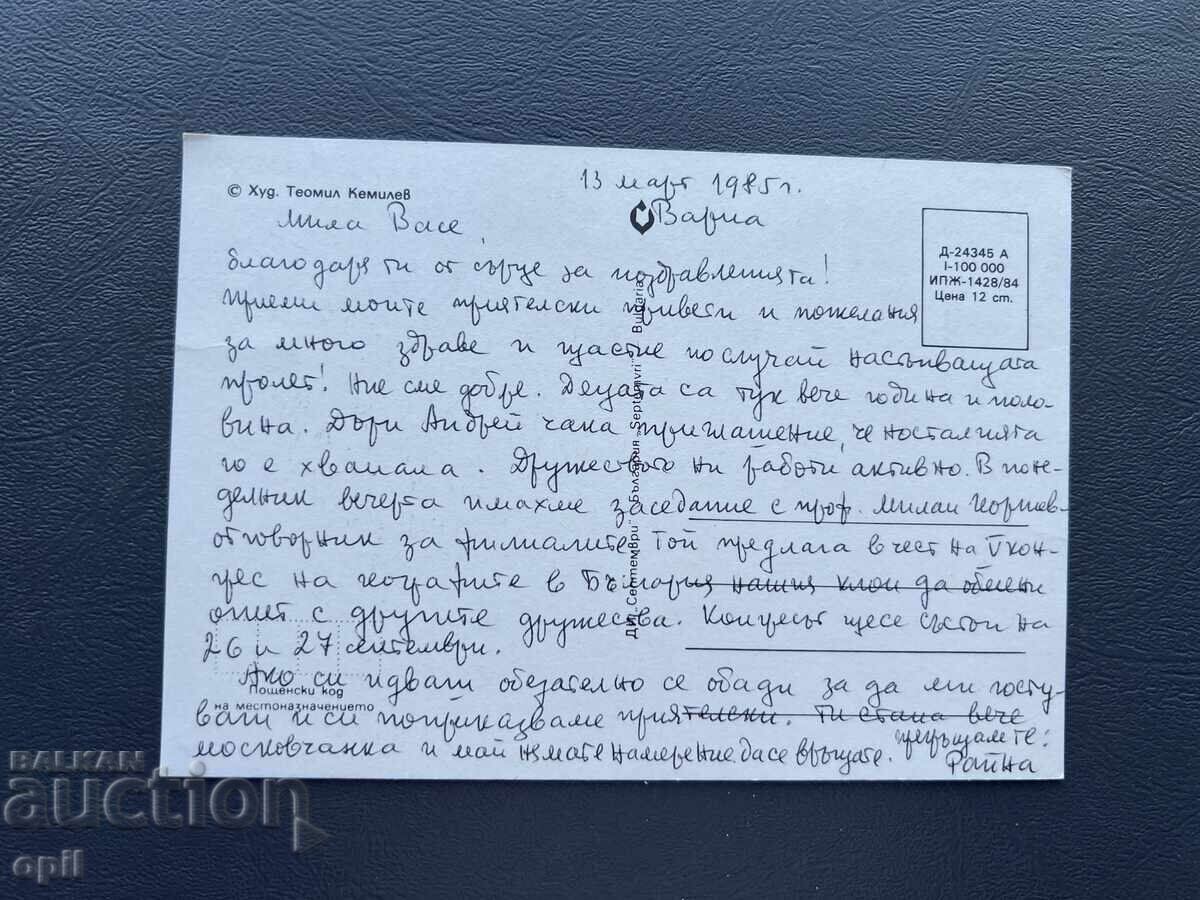 © Худ. Теомил Кемилев
13 март 1985 г.
Варна
Мила Васе,
Д-24345 А
I-100 000
ИПЖ-1428/84
Цена 12 ст.
благодаря ти от сърце за поздравленията!
Приеми моите приятелски привети и пожелания
за много здраве и щастие по случай настъпващата
пролет! Ние сме добре. Децата са тук вече година и поло-
вина. Дори Андрей чака приглашение, че носталгията
го е хванала. Дружеството ни работи активно. В поне-
делник вечерта имахме заседание с проф. Милан Георгиев-
отговорник за филиалите. Той предлага в чест на V кон-
грес на географите в България нашия клон да обмени
опит с другите дружества. Конгресът ще се състои на
26 и 27 септември.
Ако си идваш обезателно се обади за да ми госту-
ваш и си поприказваме приятелски. Ти стана вече
московчанка и май нямате намерение да се връщате.
Райна
ДИ „Септември“ България „Septemvri“ Bulgaria
Пощенски код
на местоназначението
BALKAN
auction
opil